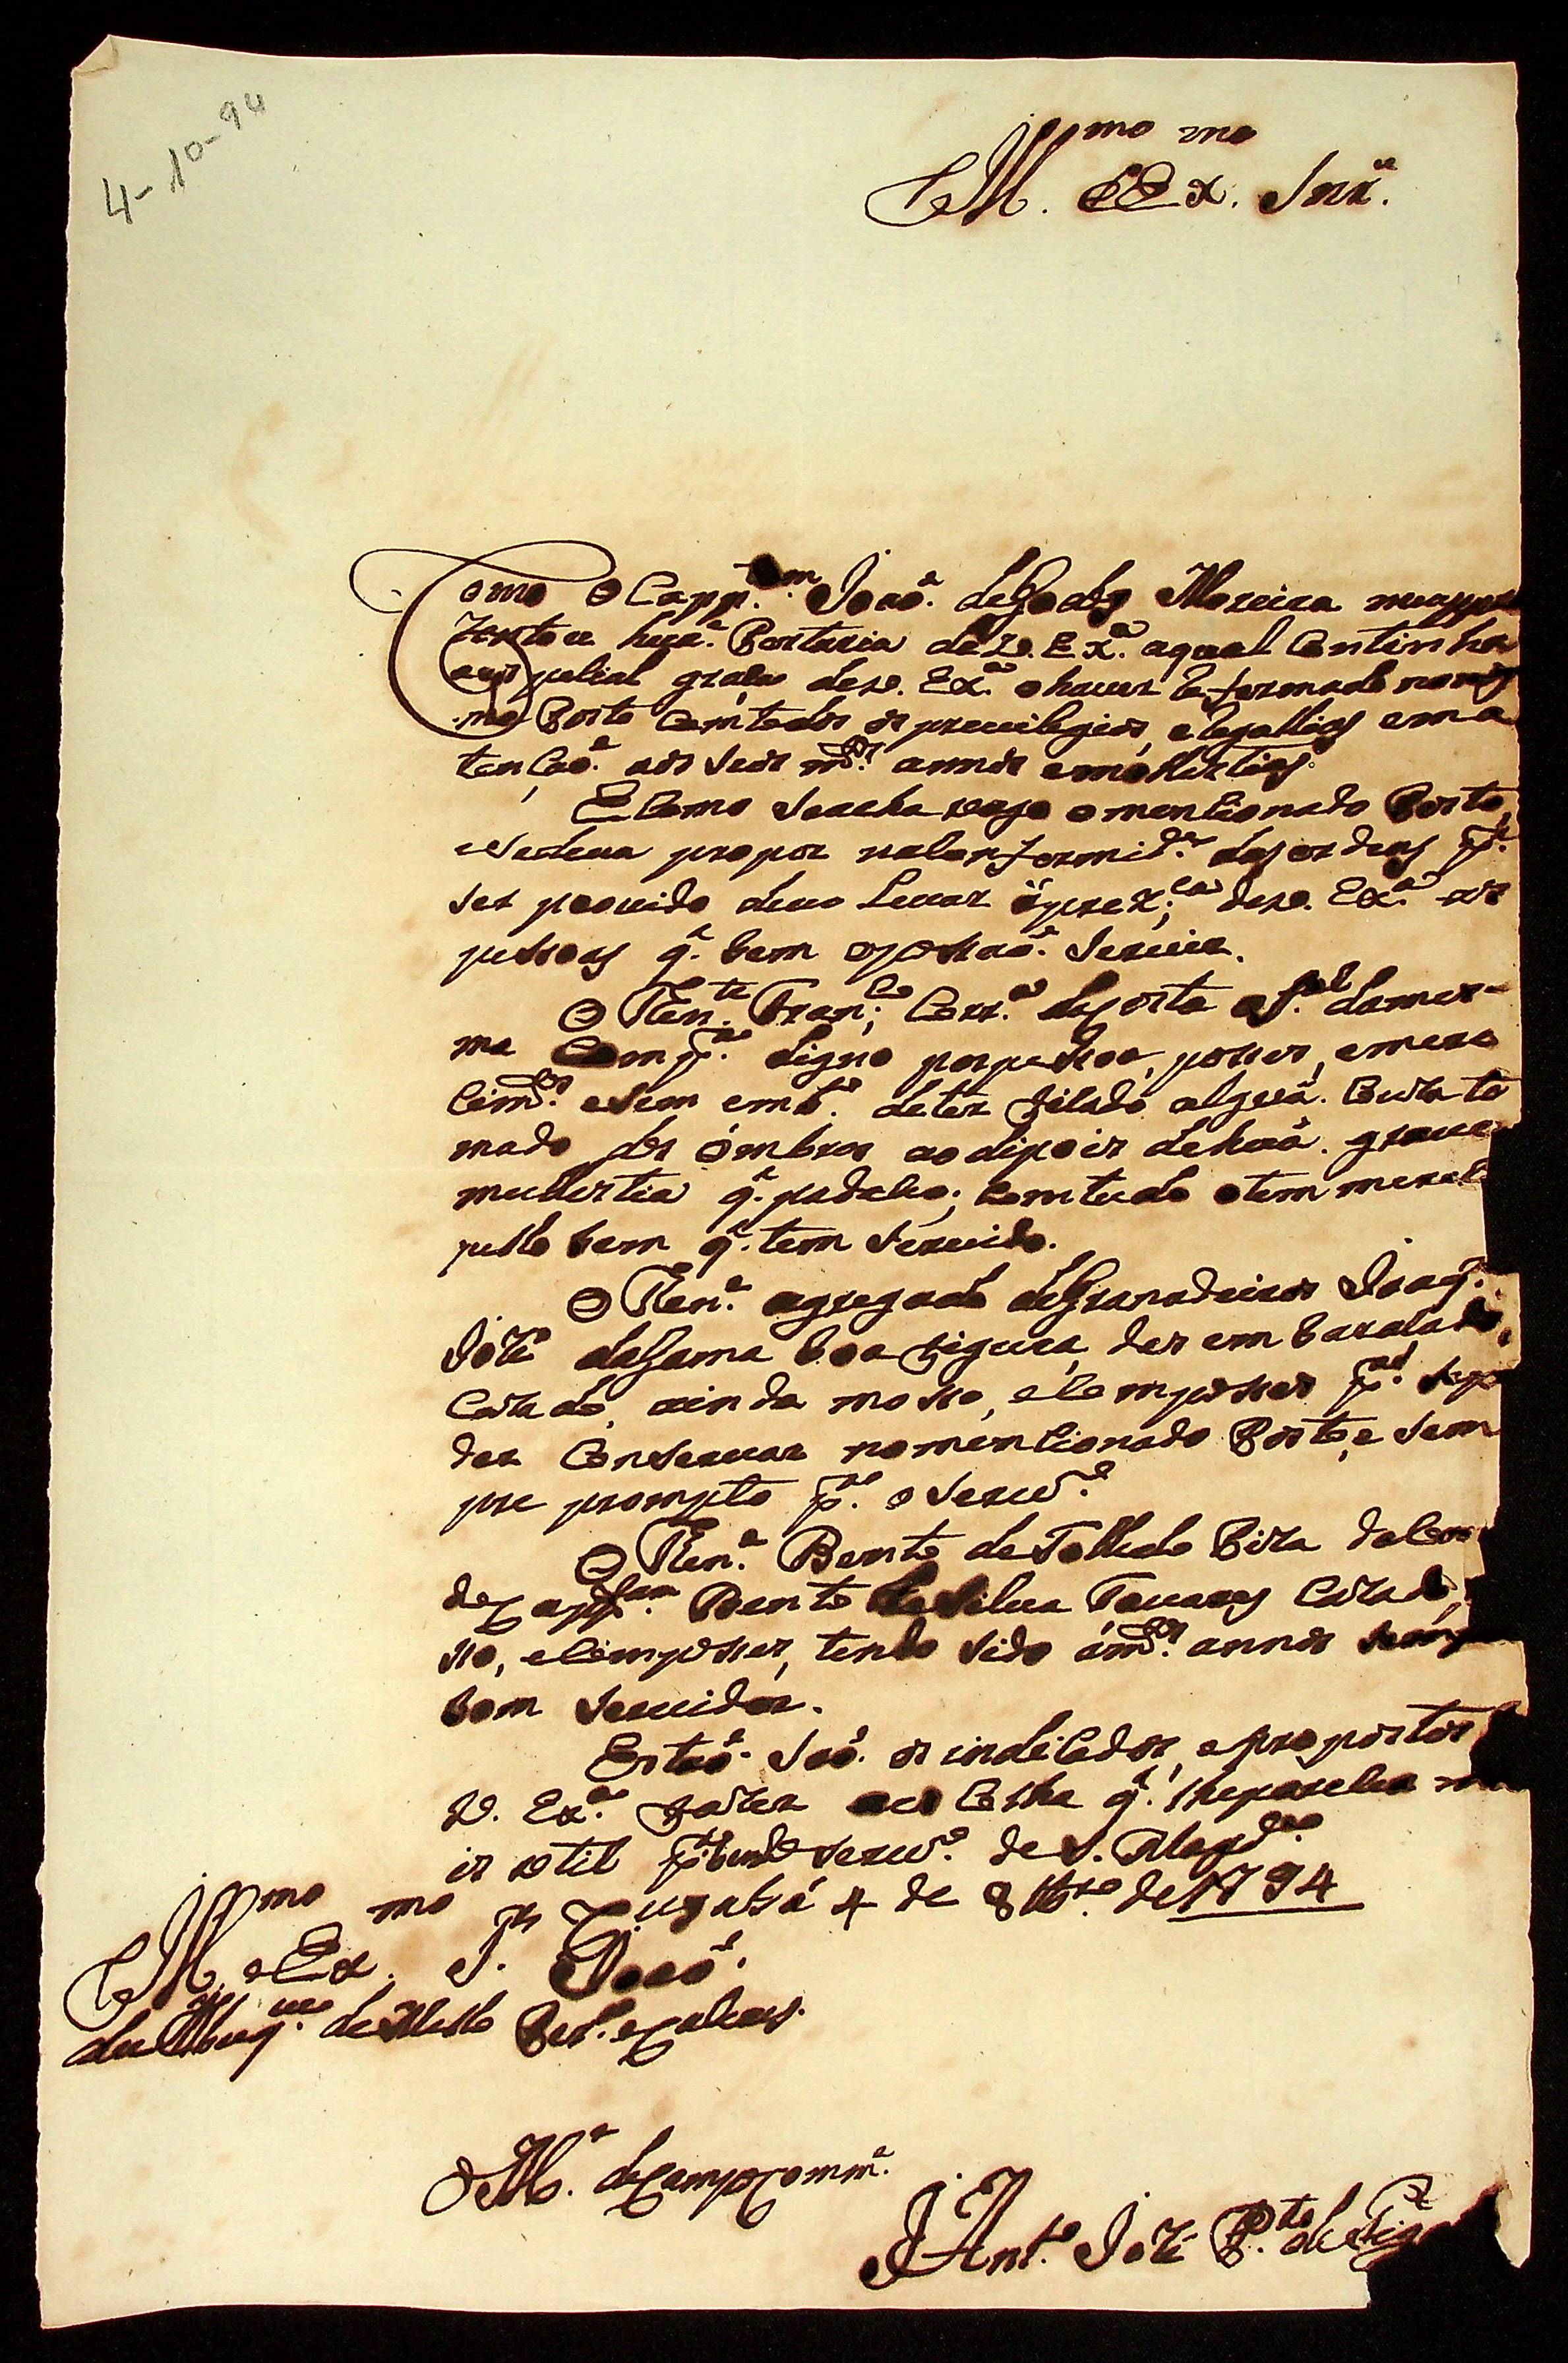 4-10-94
Ill.mo e Ex.mo Snr.
Como o Capp.tam João de Godoy Moreira me appre
zentou huã Portaria de V. Ex.a a qual Continha
a especial graça de V. Ex.a o haver reformado no mes
mo Posto com todos os previlegios, e regallias em a
tenção aos seos m.tos annos e molestias.
E Como se acha vago o mencionado Posto,
e se deva propor na Conformid.e das ordens p.a
ser provido devo levar á prez.ca de V. Ex.a as
pessoas q. bem o possaõ servir.
O Ten.te Fran.co Corr.a da Costa a S.al da mes-
ma Comp.a digno por pessoa, posses, e mere
cim.tos e sem emb.o de ter ficado alguã Couza to
mado dos ombros ao dipois de huã grave
mullestia q. padeceo; Comtudo o tem mereci
pello bem q. tem servido.
O Ten.e agregado de Granadeiros Joaq.
Jozé da Gama boa figura, dezembaraçado,
Cazado, ainda mosso, e Com posses p.a se po
der Conservar no mencionado Posto, e sem
pre prompto p.a o serv.o
O Ten.e Bento de Tolledo Piza da Com
de Capp.tam Bento da Silva Tavares Cazado,
sso, e Com posses, tendo sido á m.tos annos sempre
bom servidor.
Estes São os indicados, e propostos
V. Ex.a fazer a escolha q. lhe pareser ma
is util p.a bem do serv.o de S. Mag.de
Pin Guatubá 4 de 8br.o de 1794
Ill.mo e Ex.mo S.r João
de Albuq.ue de Mello Per.a e Caceres.
o M.e de Campo Comm.e
Ant.o Jozé P.to de Fig